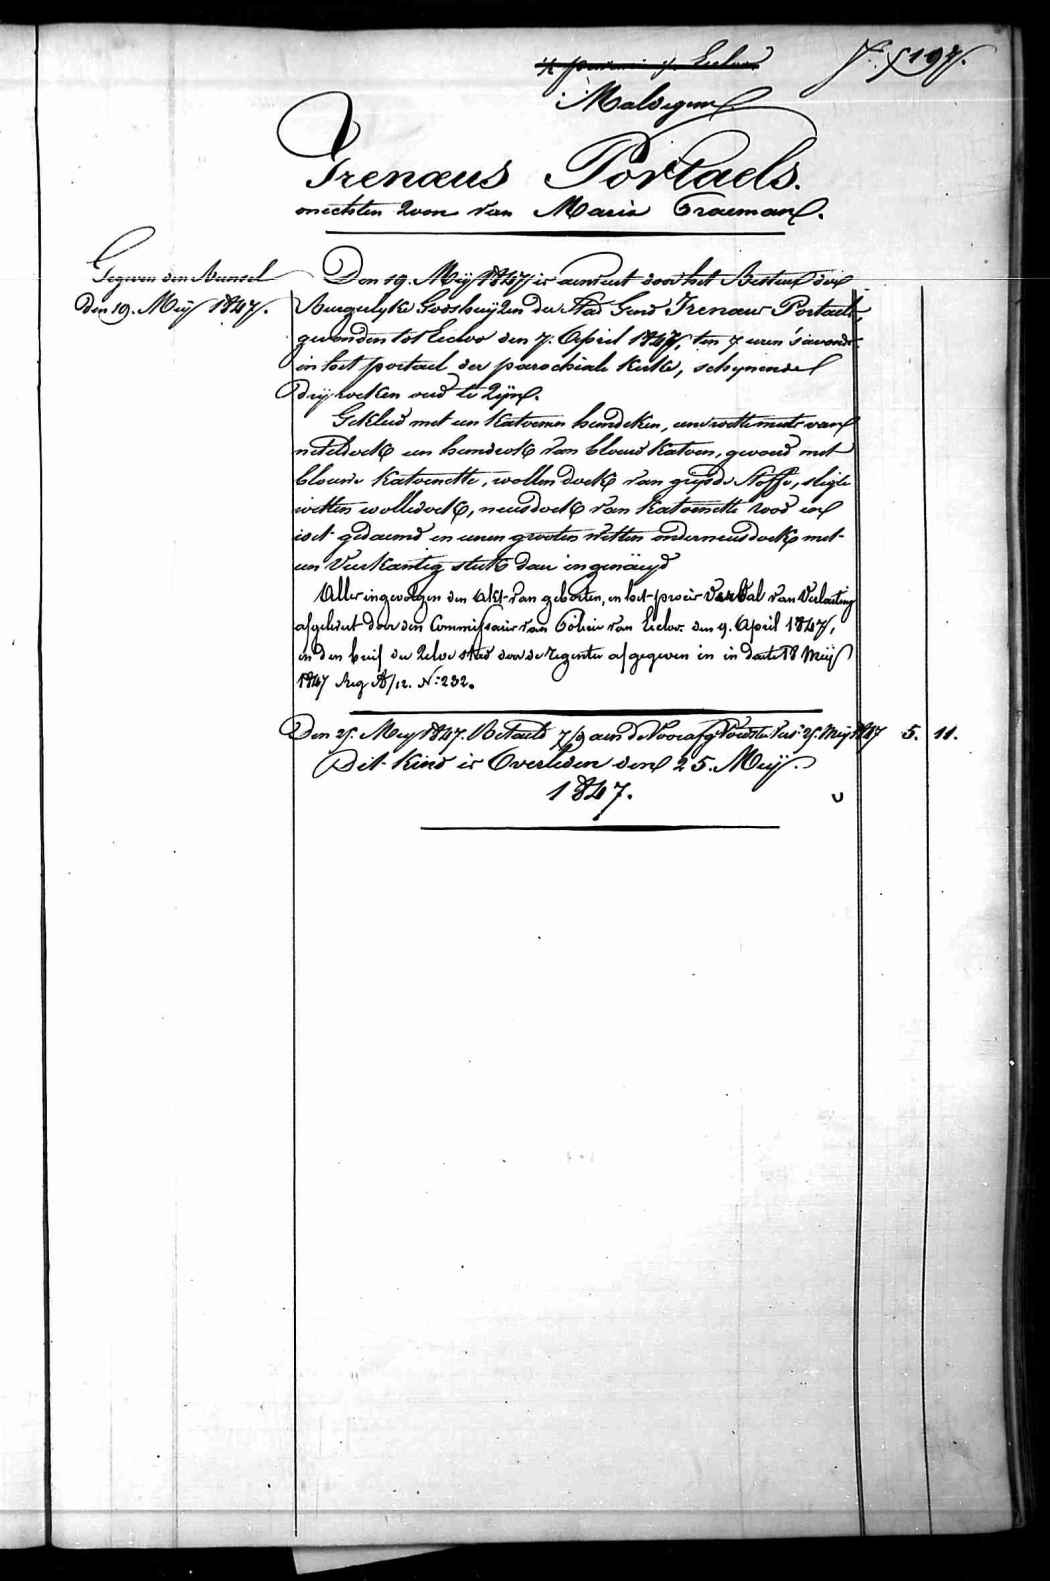 197.
Maldegem
Irenæus Portaels.
onechten Zoon van Maria Traeman.
Gegeven den Bunsel
den 19. Meij 1847.
Den 19. Meij 1847 is aenveert door het Bestier der
Burgelyke Godshuijzen der Stad Gend Irenæus Portaels,
gevonden tot Eecloo den 7. April 1847, ten 7 uren 's avonds
in het portael der parochiale Kerke, schynende
drij weken oud te Zijn.
Gekleed met een Katoenen hemdeken, een witte muts van
neteldoek een hemdrok van blauw Katoen, gevoerd met
blauwe Katoenette, wollen doek van grijsde Stoffe, slegte
witten wolledoek, neusdoek van Katoenette rood en
wit gedamd en eenen grooten witten onderneusdoek met
een Vierkantig stuk daer ingenäeyd
Alles ingevolgen den Akt van geboorten, en het proces Verbal van Verlaeting
afgelevert door den Commissaris van Policie van Eecloo den 9. April 1847,
en den brief der Zelve stad door de regentie afgegeven in in date 18 Meij
1847 Reg A/12. N.º 232.
Den 25. Mey 1847. Betaeld 7/9 aen de Voorafg Voedster tot 25 Meij 1847 5. 11.
Dit Kind is Overleden den 25. Meij
1847.